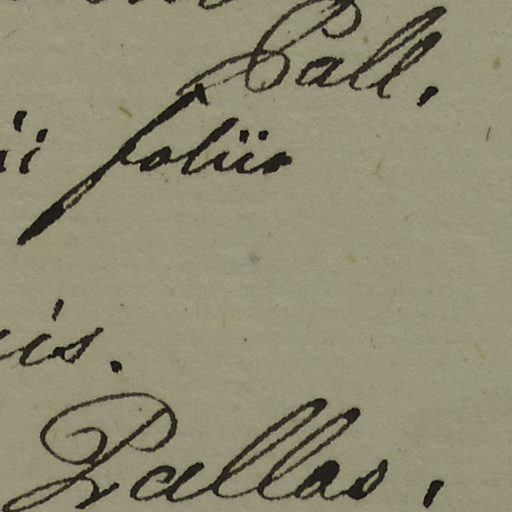 Pall.
foliis
is.
Pallas,